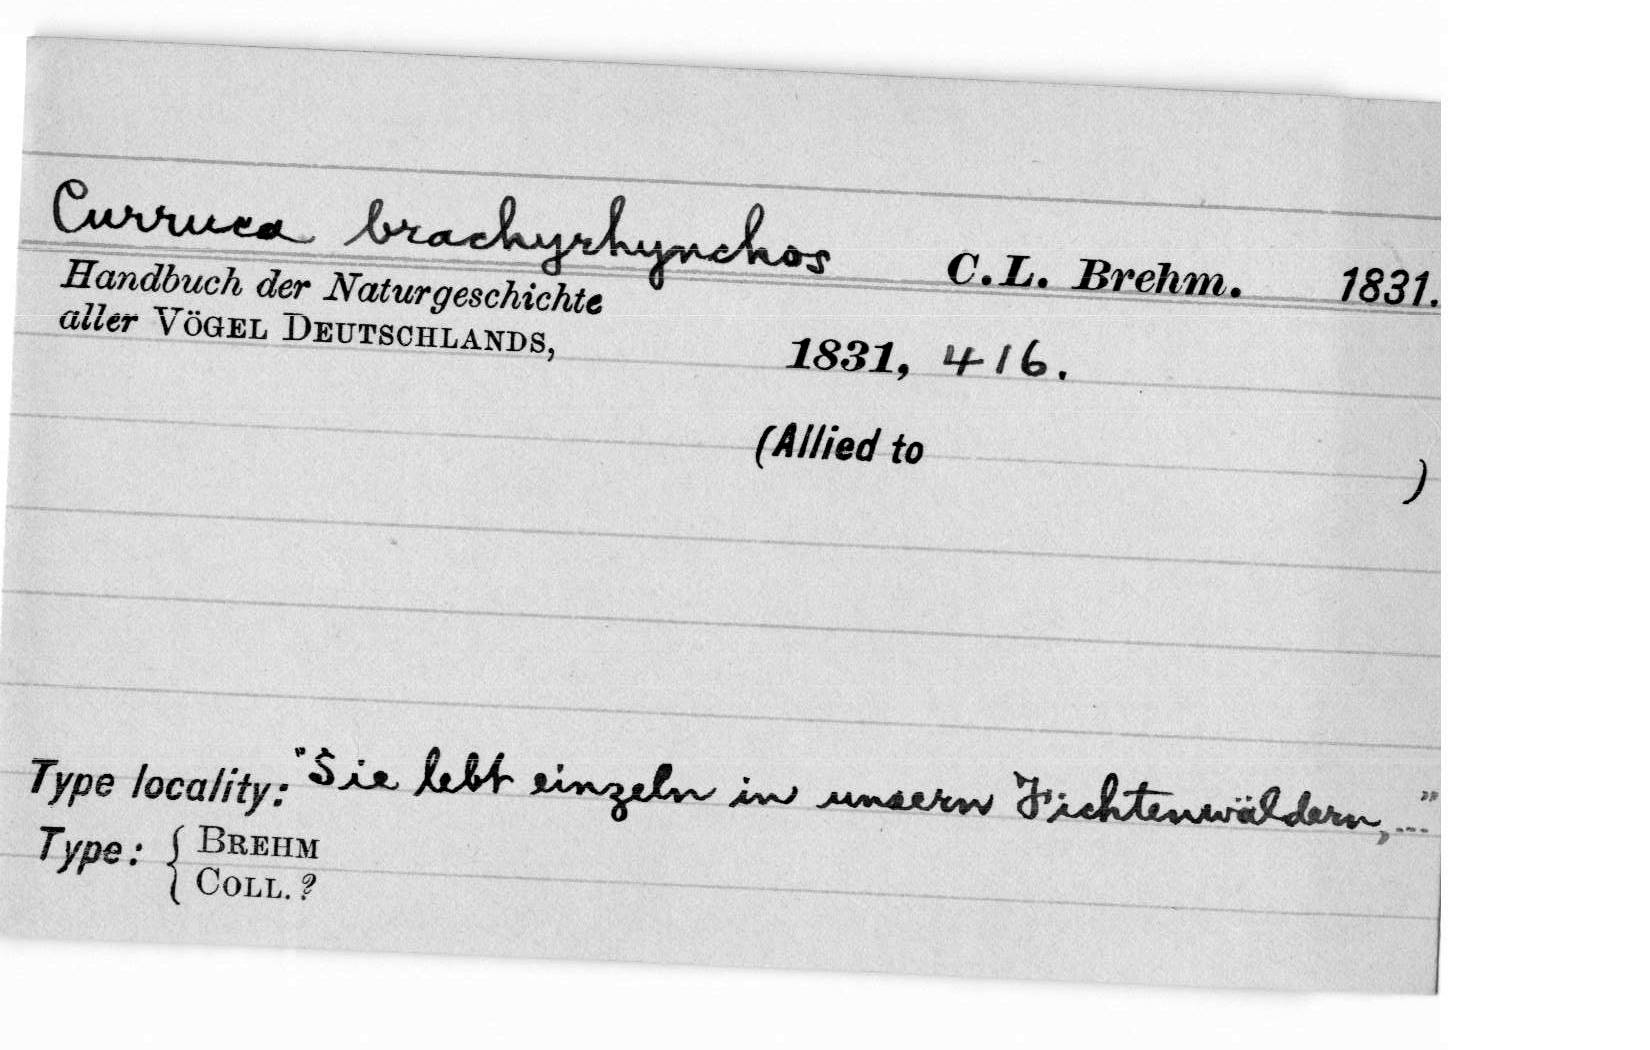 Curruca brachyrhynchos C.L. Brehm. 1831.
Handbuch der Naturgeschichte
aller VÖGEL DEUTSCHLANDS,
1831, 416.
(Allied to )
Type locality: "Sie lebt einzeln in unsern Fichtenwäldern, ..."
Type: { BREHM
COLL. ?